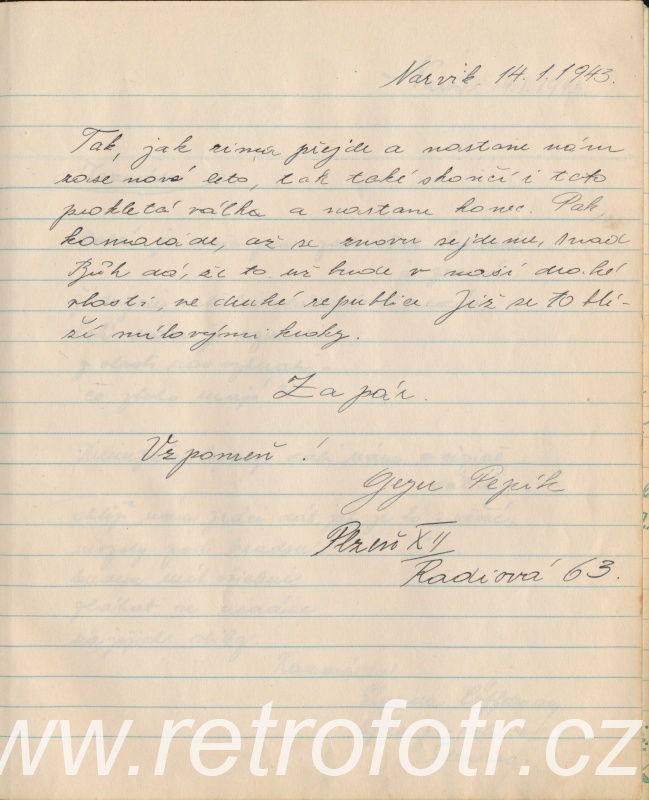 Narvik 14.1.1943.
Tak, jak zima přejde a nastane nám
zase nové léto, tak také skončí i tato
prokletá válka a nastane konec. Pak,
kamaráde, až se znovu sejdeme, snad
Bůh dá, že to už bude v naší drahé
vlasti, ve druhé republice. Již se to blí-
ží mílovými kroky.
Za pár.
Vzpomeň!
Pepík
Plzeň XII
Radiová 63.
www.retrofotr.cz